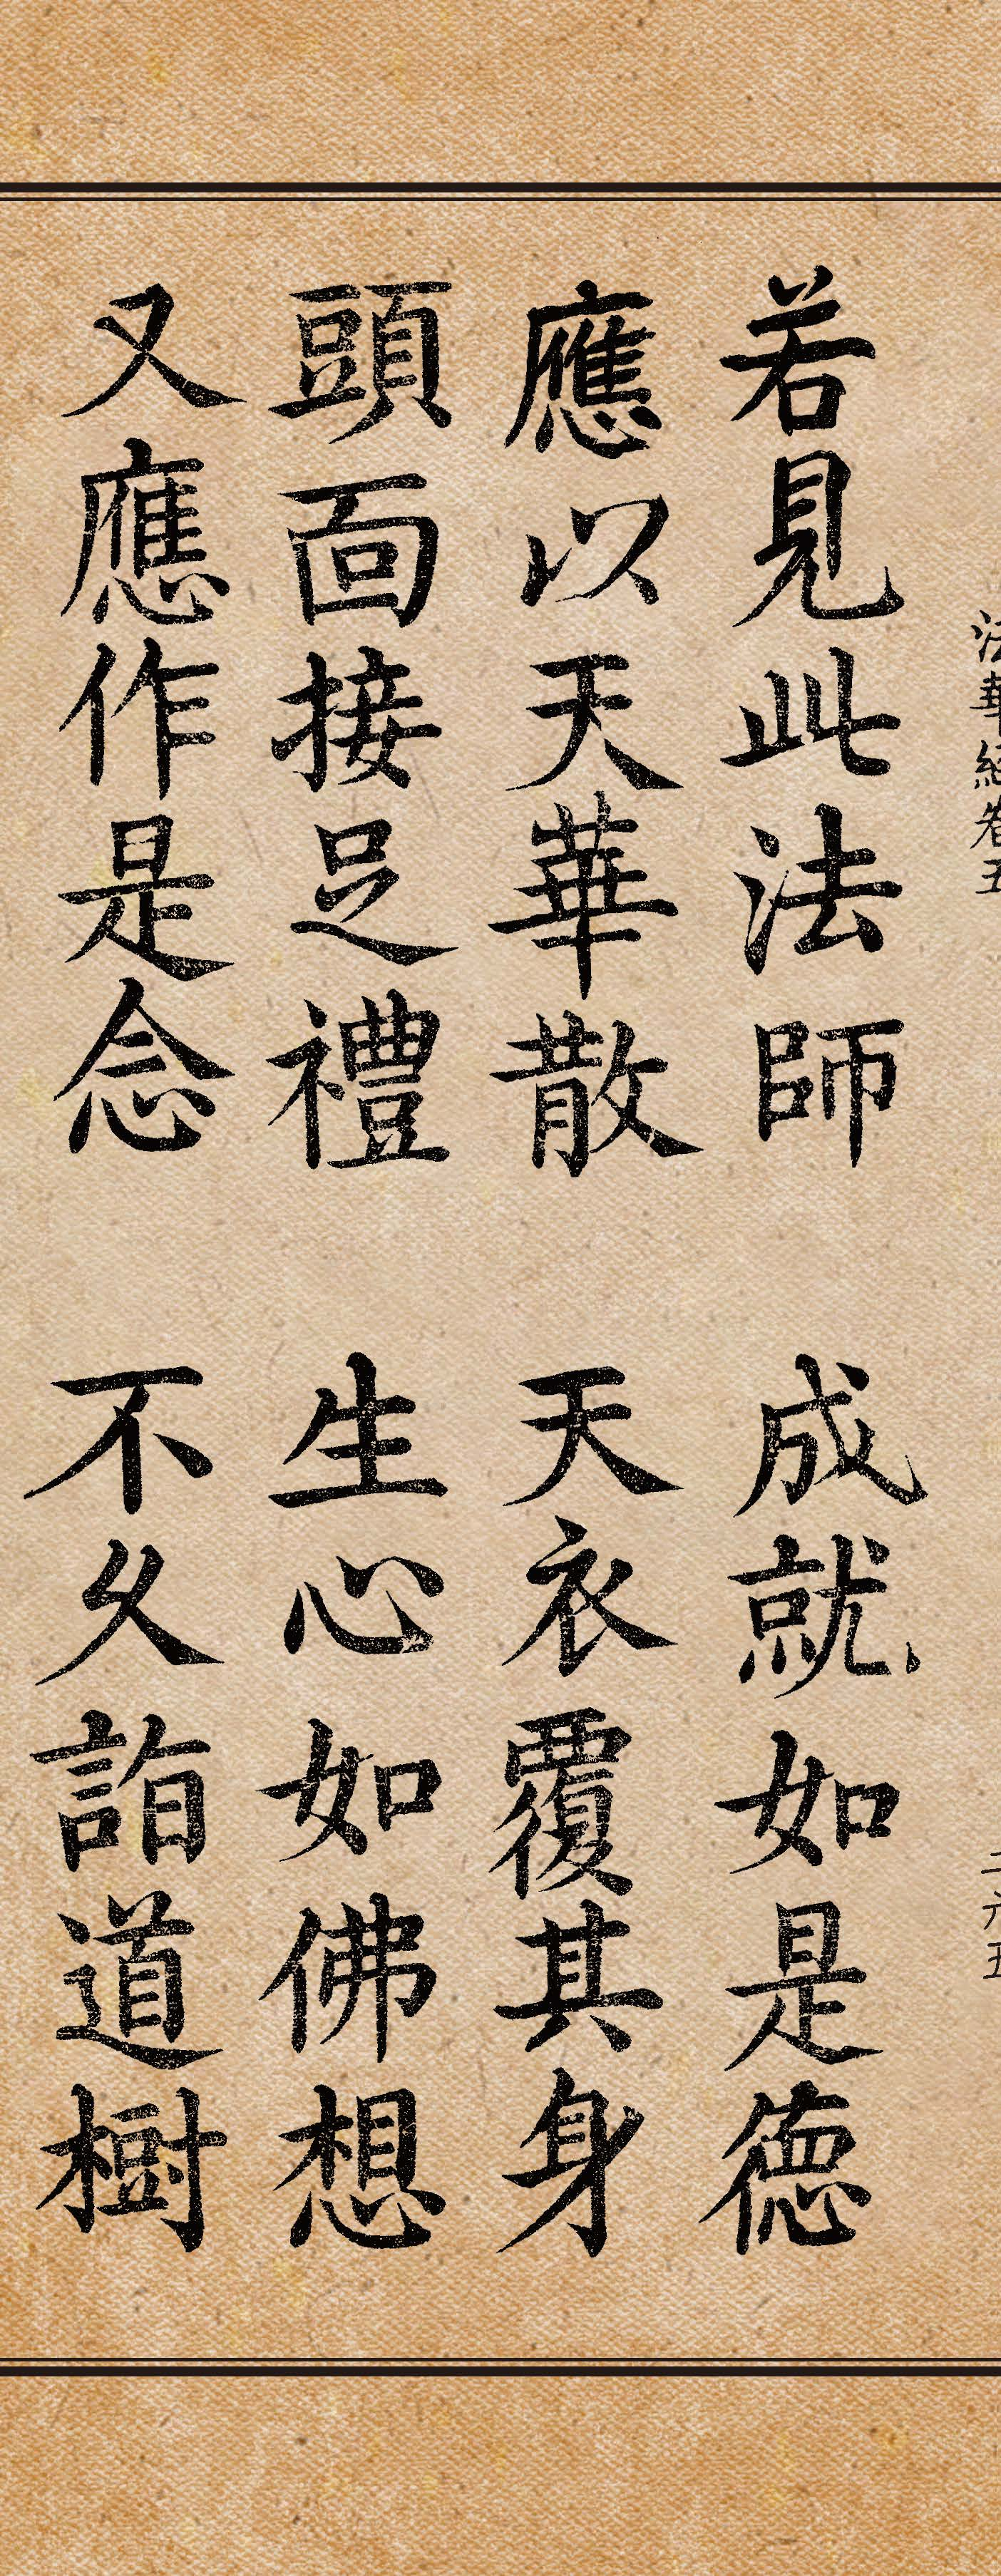 法華經卷五 二六五
若見此法師 成就如是德
應以天華散 天衣覆其身
頭面接足禮 生心如佛想
又應作是念 不久詣道樹